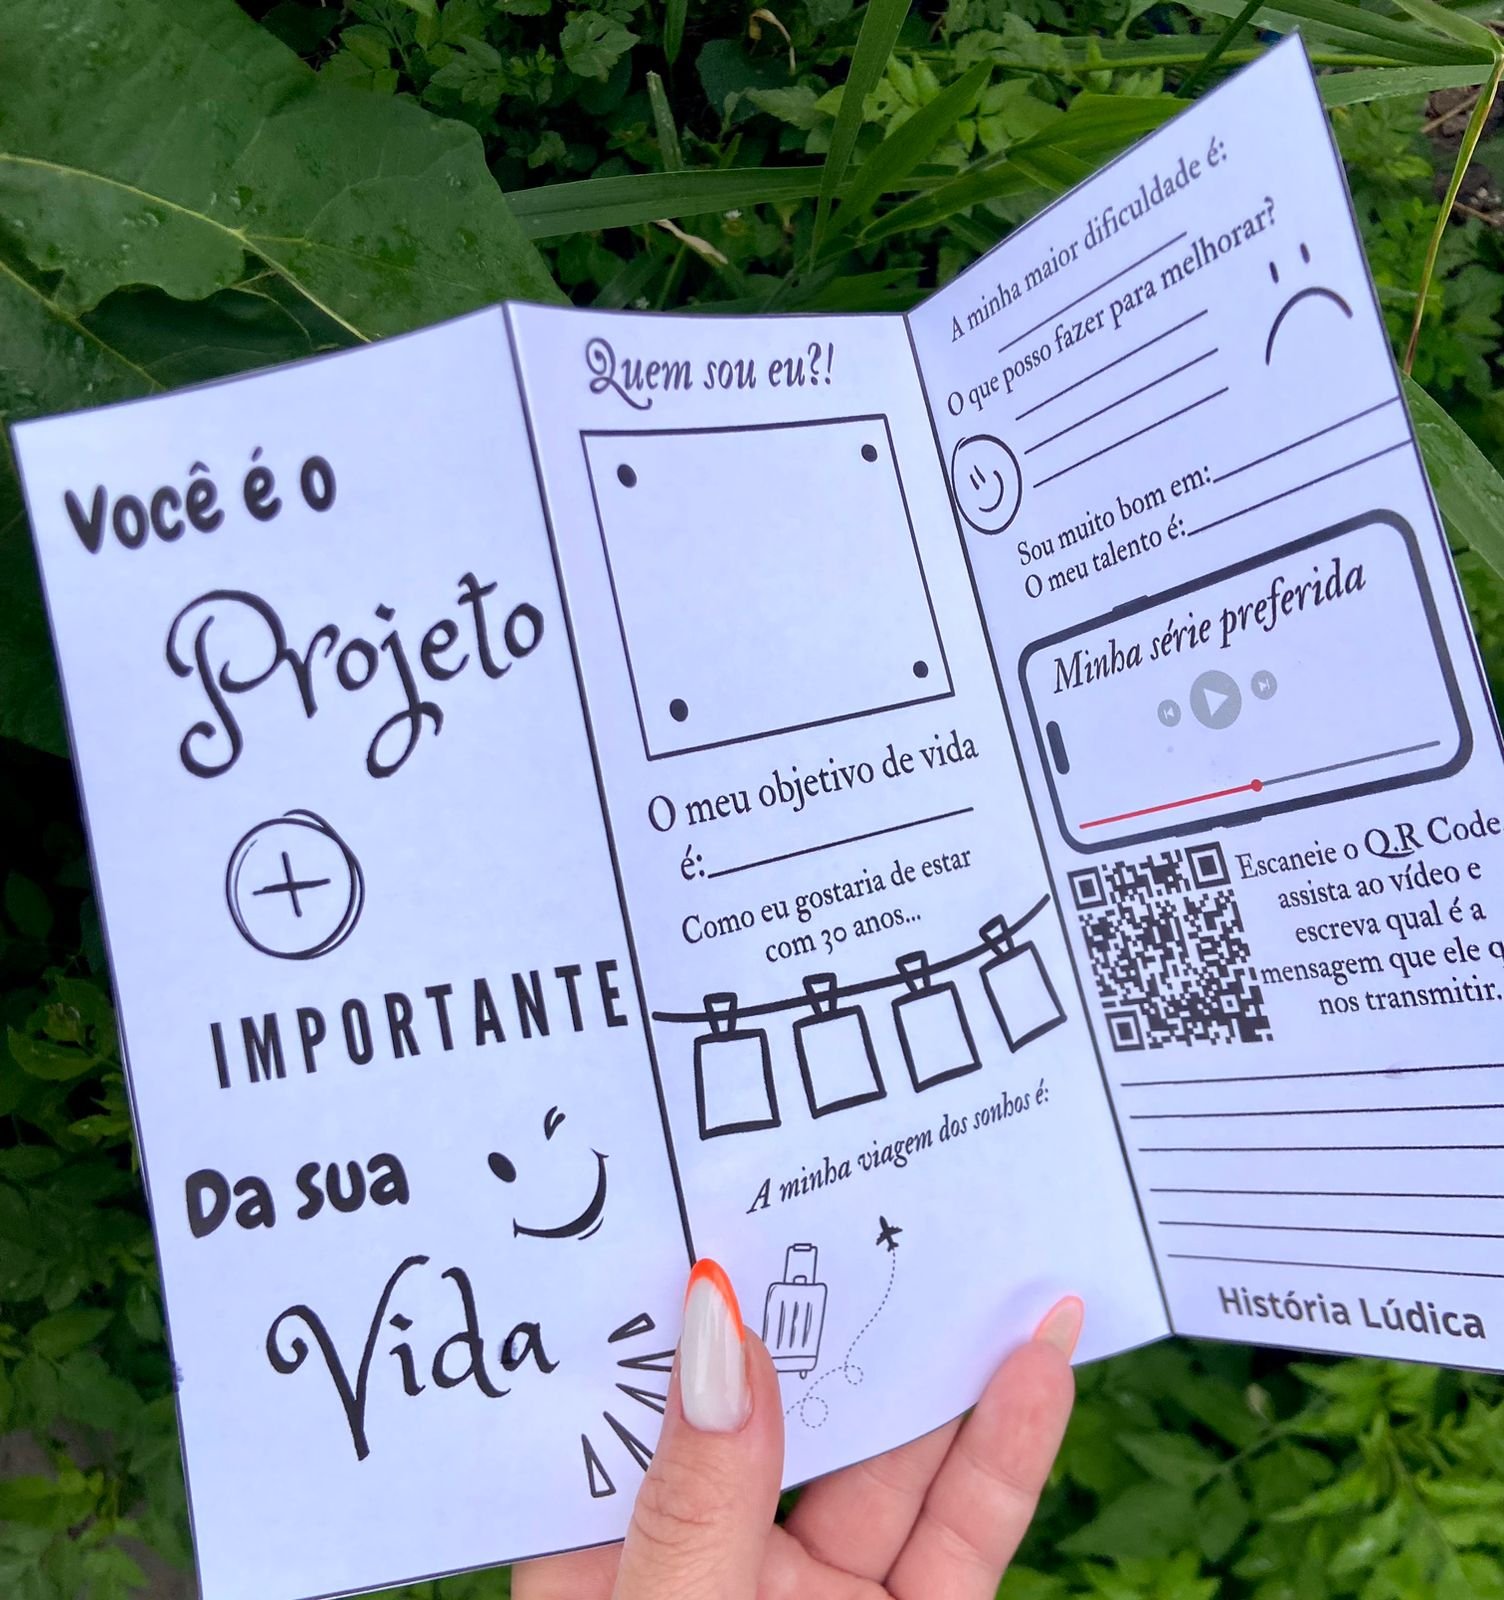 Você é o
Projeto
+
IMPORTANTE
Da sua
Vida
Quem sou eu?!
O meu objetivo de vida
é:
Como eu gostaria de estar
com 30 anos...
A minha viagem dos sonhos é:
A minha maior dificuldade é:
O que posso fazer para melhorar?
Sou muito bom em:
O meu talento é:
Minha série preferida
Escaneie o Q.R Code
assista ao vídeo e
escreva qual é a
mensagem que ele q
nos transmitir.
História Lúdica